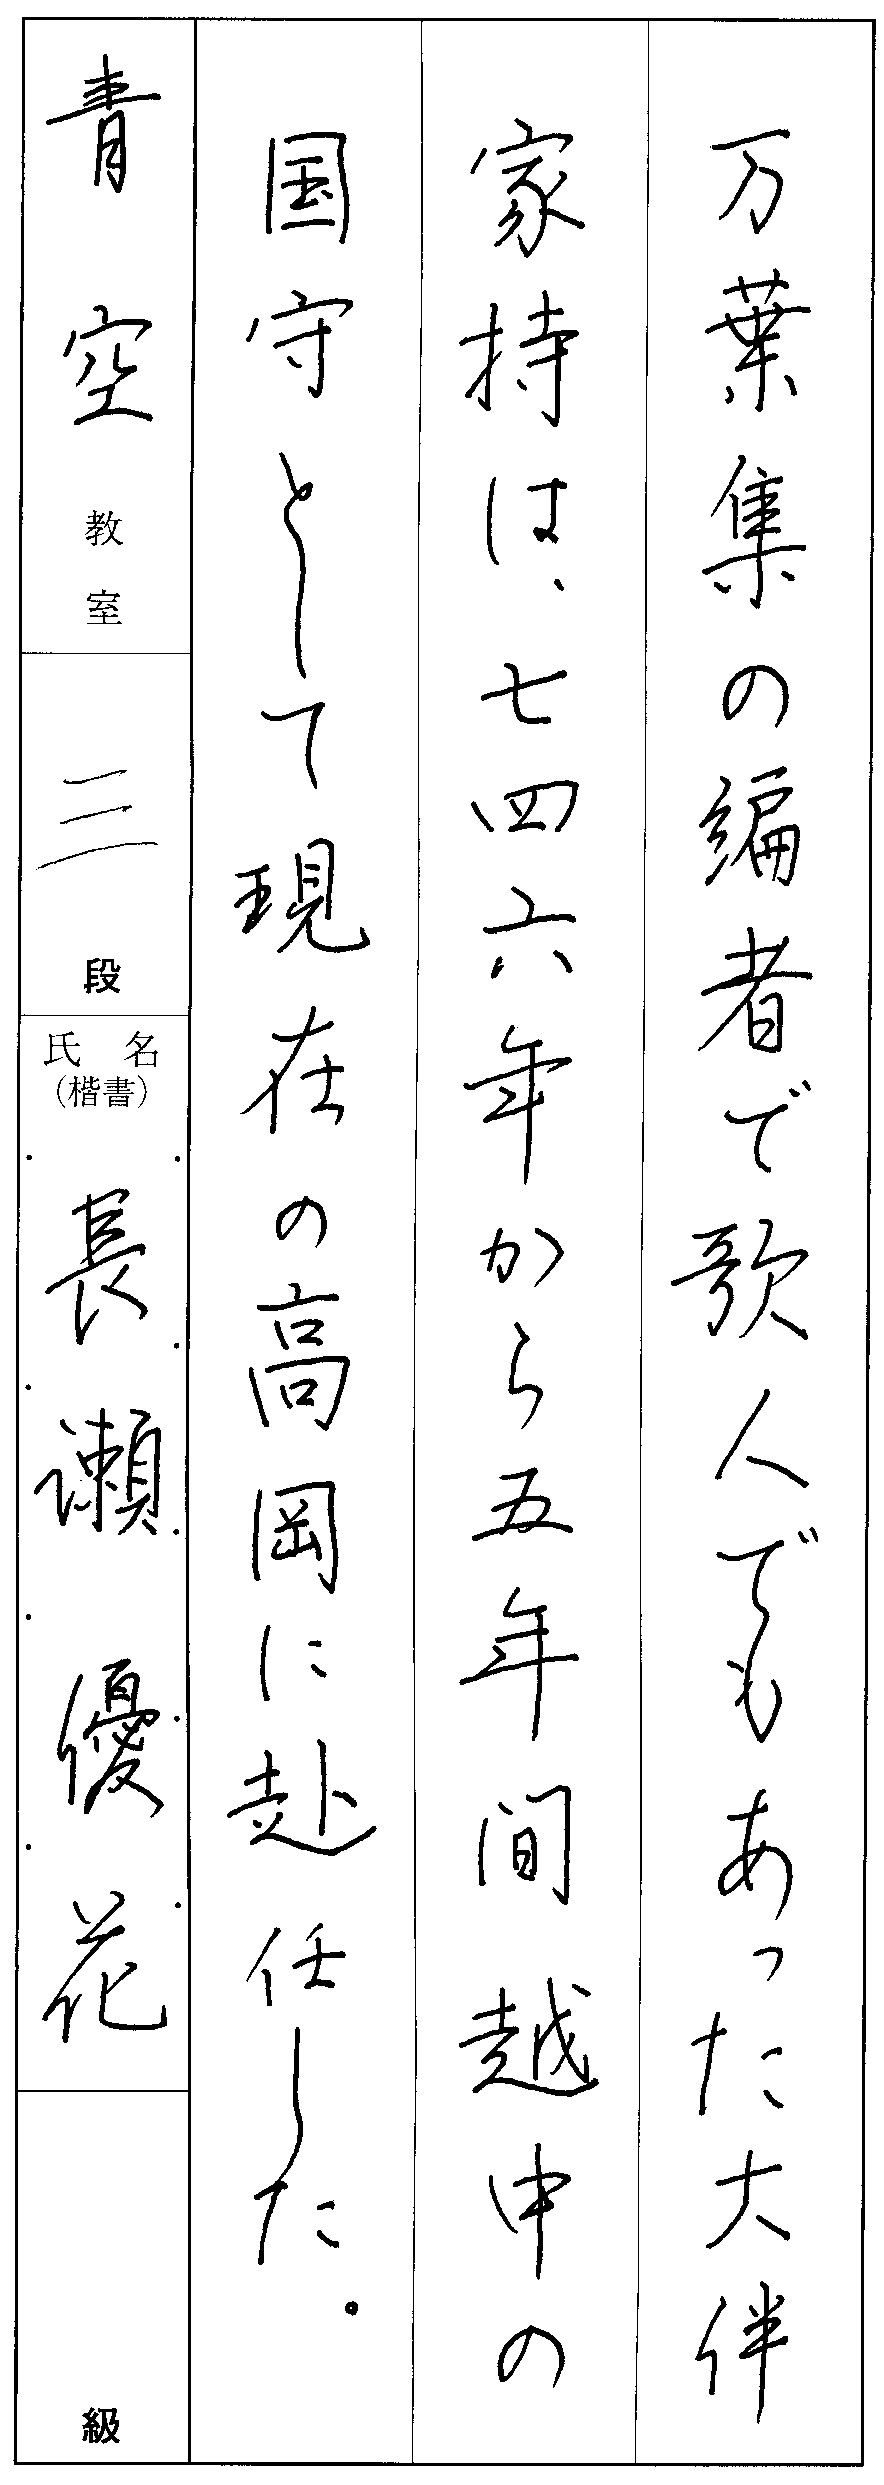 万葉集の編者で歌人でもあった大伴
家持は、七四六年から五年間越中の
国守として現在の高岡に赴任した。
青空教室
三段
氏名
(楷書)
長瀬優花
級